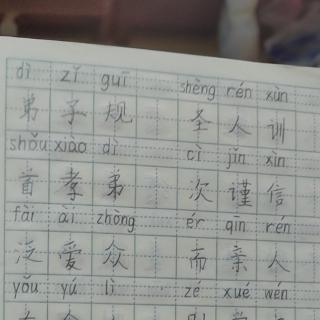 dì zǐ guī shèng rén xùn
弟子规 圣人训
shǒu xiào dì cì jǐn xìn
首孝弟 次谨信
fài ài zhòng ér qīn rén
泛爱众 而亲人
yǒu yú lì zé xué wén